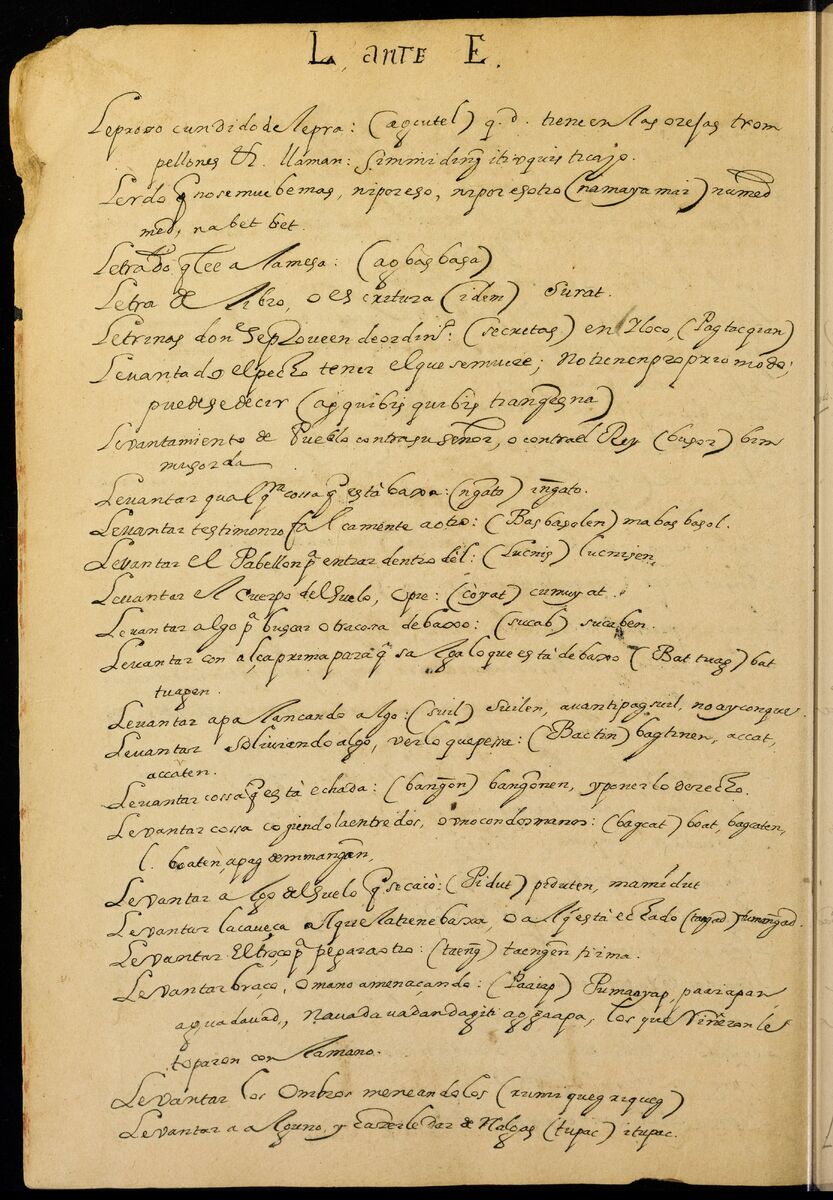 L, ante E.
Leproso cundido de lepra: (agcutel) q. d. tiene en las orejas trom
pellones
Lerdo q̃ no se muebe mas, ni por eso, ni por esotro (namayamai) numed
med, nabet bet.
Letrado q̃ lee a la mesa: (agbas basa)
Letra de libro, o escritura (idem) Surat.
Letrinas (secretas) en Yloco, (Pagtacqian)
Levantado el pecho tener el que se muere; no tienen proprio modo;
puedese decir (agquibis quibis
Levantamiento de Pueblo contra su Señor, o contra el Rey (busor) bim
musorda
Levantar qualq.r cossa q̃ està baxa: (ngato) ingato.
Levantar testimonio falçamente a otro: (Basbasolen) mabasbasol.
Levantar el Pabellon p.a entrar dentro del: (Lucnis) lucnisen,
Levantar el cuerpo del suelo, (coyat) cumuyat.
Levantar algo p.a buscar otra cosa debaxo: (sucab) sucaben.
Levantar con alçaprima para q̃ salga lo que està debaxo (Battuag) bat
tuagen.
Levantar apalancando algo: (suil) Suilen, auanti pagsuil, no ay con que.
Levantar soliviando algo, ver lo que pessa: (Bactin) bagtinen, accat,
accaten.
Levantar cossa q̃ està echada: (bangon) bangonen, y ponerlo derecho.
Levantar cossa cogiendola entre dos, o uno con dos manos: (bagcat) boat, bagcaten,
l. boaten,
Levantar algo del suelo q̃ se caiò: (Pidut) piduten, mamidut
Levantar la caveça el que la tiene baxa, o el q̃ està echado (tangad) tumangad.
Levantar El troço p.a pegar a otro: (taeng) taengen
Levantar braço, o mano amenaçando: (Paaiap) Pumaayap, paaiapan
los que vinieron le
toparon con la mano.
Levantar los ombros meneandolos (rumiquegriqueg)
Levantar a alguno, y caerle dar de Nalgas (tupac) itupac.